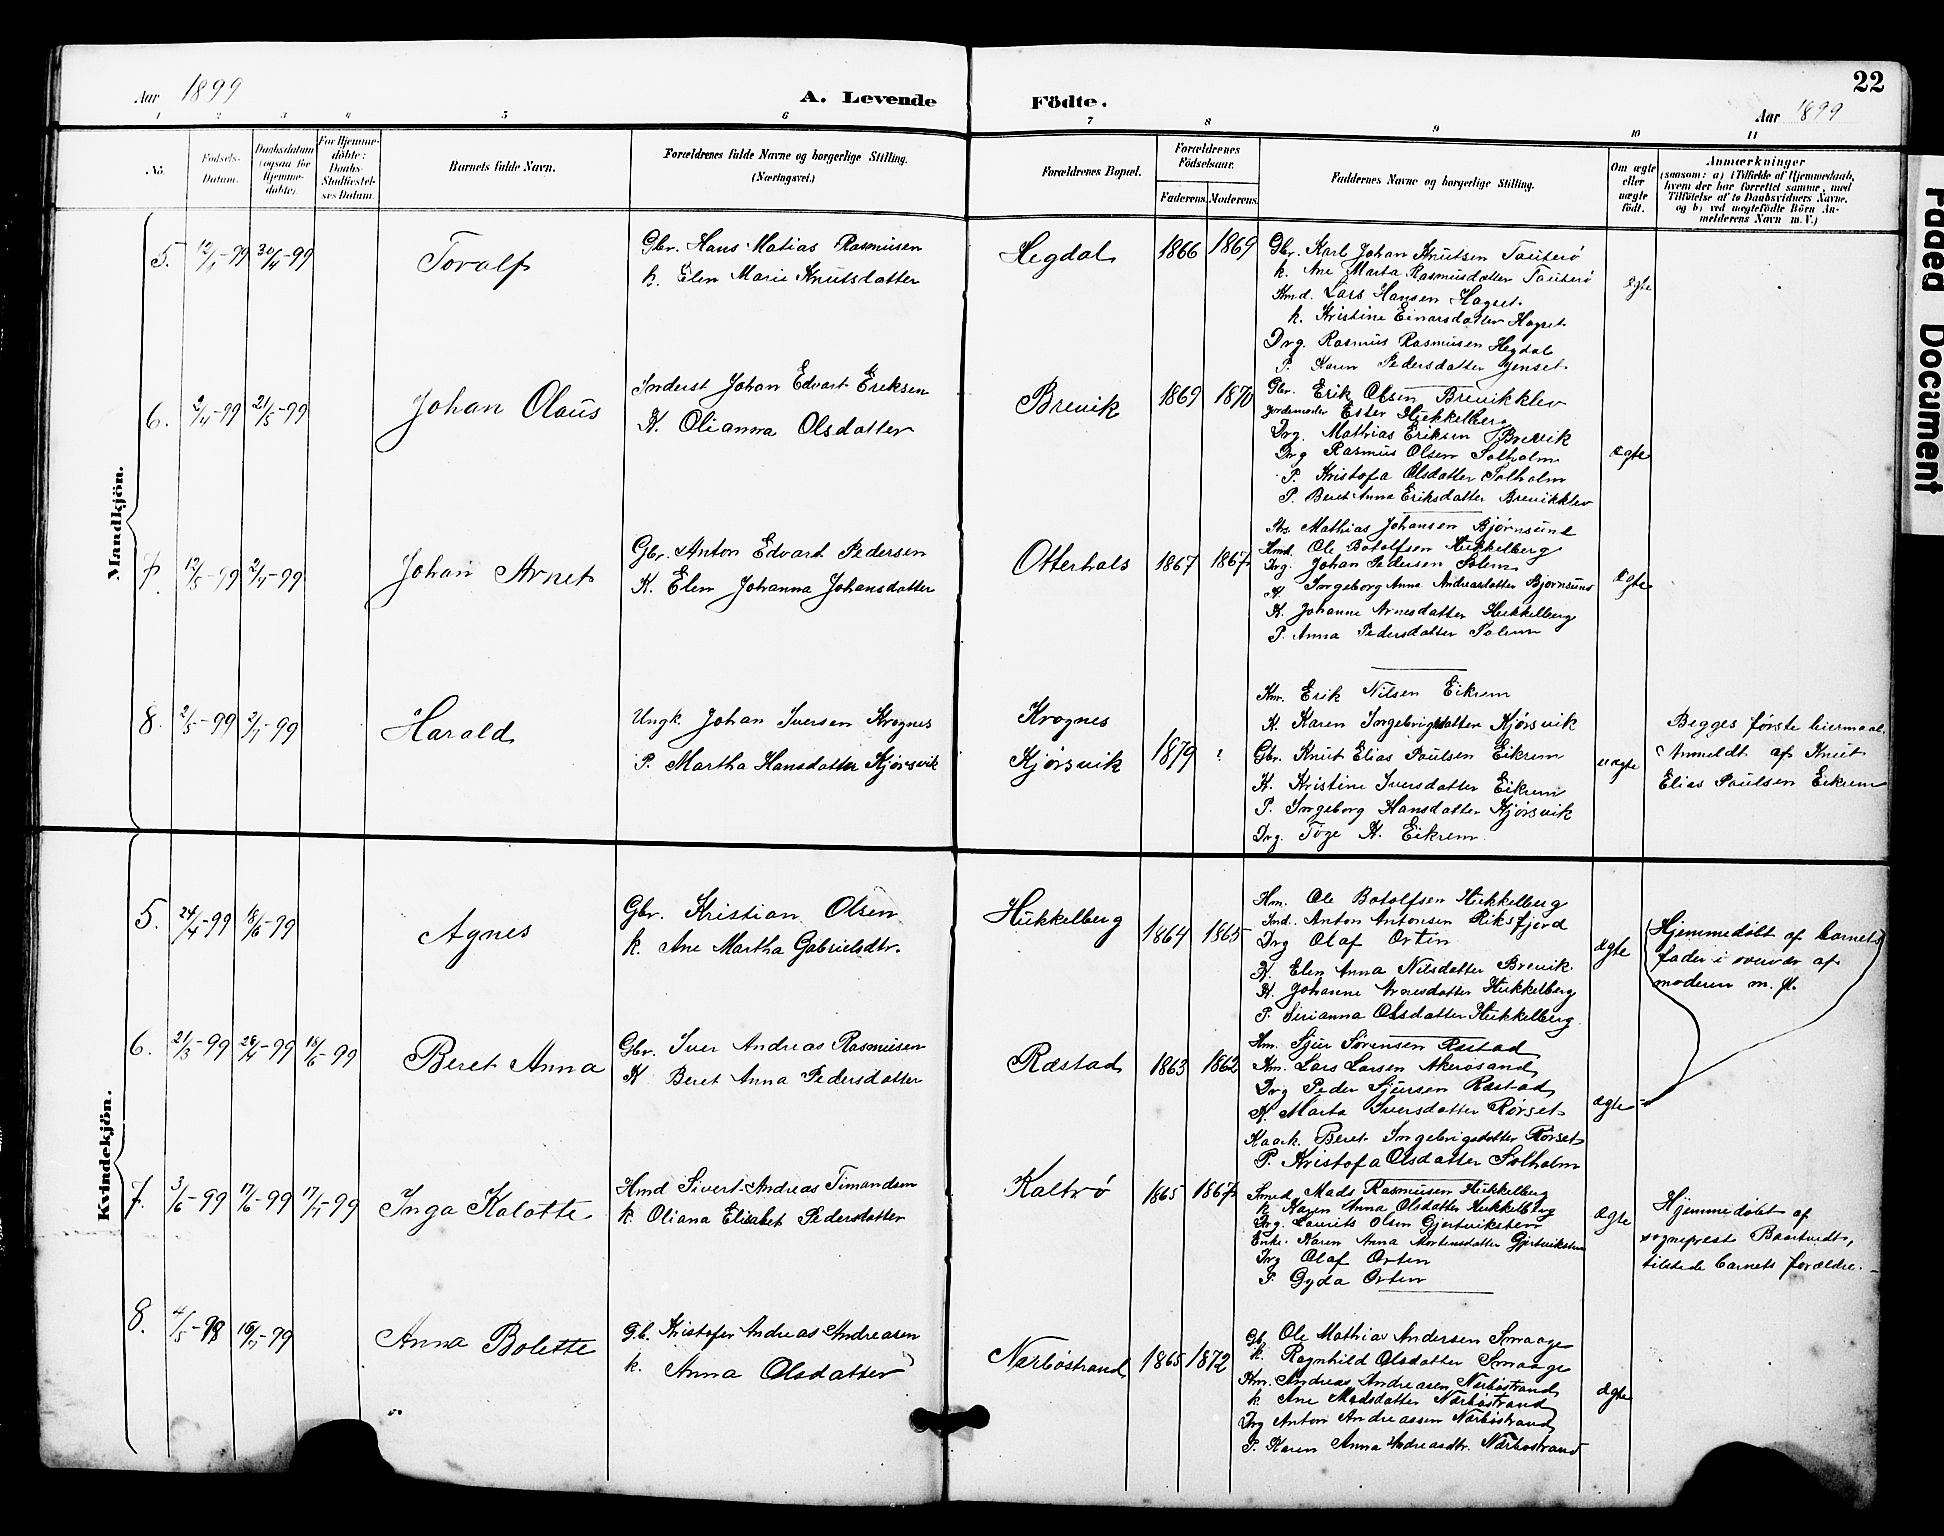 Aar 1899
A. Levende Födte.
22
Aar 1899
1 2 3 4 5 6 7 8 9 10 11
No.
Fødsels-Datum.
Daabsdatum (ogsaa for Hjemmedøbte).
For Hjemmedöbte: Daabs-Stadfæstelses Datum.
Barnets fulde Navn.
Forældrenes fulde Navne og borgerlige Stilling. (Næringsvei.)
Forældrenes Bopæl.
Forældrenes Födselsaar.
Faderens. Moderens.
Faddernes Navne og borgerlige Stilling.
Om ægte eller uægte født.
Anmærkninger
(saasom: a) i Tilfælde af Hjemmedaab, hvem der har forrettet samme, med Tilföielse af to Daabsvidners Navne, og b) ved uægtefödte Börn Anmelderens Navn m. V.)
Mandkjön.
5. 12/1-99 30/4-99 Toralf
Gbr. Hans Matias Rasmussen
k. Elen Marie Knutsdatter
Hegdal 1866 1869
Gbr. Karl Johan Knutsen Tauterö
k. Ane Marta Rasmusdatter Tauterö
Kmd. Lars Hansen Hagset
k. Kristine Einarsdatter Hagset
Drg. Rasmus Rasmussen Hegdal
P. Karen Pedersdatter Jenset
ægte
6. 2/4-99 21/5-99 Johan Olaus
Inderst Johan Edvart Eriksen
K. Olianna Olsdatter
Brevik 1869 1870
Gbr. Erik Olsen Brevikklev
Jordemoder Ester Hukkelberg
Drg. Mathias Eriksen Brevik
Drg Rasmus Olsen Solholm
P. Kristofa Olsdatter Solholm
P. Beret Anna Eriksdatter Brevikklev
ægte
7. 12/5-99 2/7-99 Johan Arnet
Gbr. Anton Edvart Pedersen
K. Elen Johanna Johansdatter
Otterhals 1867 1867
Mathias Johansen Bjørnsund
Kmd. Ole Botolfsen Hukkelberg
Drg. Johan Pedersen Solem
K. Ingeborg Anna Andreasdatter Bjørnsund
K. Johanne Arnesdatter Hukkelberg
P. Anna Pedersdatter Solem
ægte
8. 2/5-99 2/7-99 Harald
Ungk. Johan Iversen Krognes
P. Martha Hansdatter Kjørsvik
Krognes
Kjørsvik 1879 ?
Km. Erik Nilsen Eikrem
K. Karen Ingebrigtsdatter Kjørsvik
Gbr. Knut Elias Paulsen Eikrem
K. Kristine Iversdatter Eikrem
P. Ingeborg Hansdatter Kjørsvik
Drg. Töge K. Eikrem
uægte
Begges første leiermaal.
Anmeldt af Knut
Elias Paulsen Eikrem
Kvindekjön.
5. 24/4-99 18/6-99 Agnes
Gbr. Kristian Olsen
k. Ane Martha Gabrielsdtr.
Hukkelberg 1864 1865
Km. Ole Botolfsen Hukkelberg
Ind. Anton Antonsen Riksfjord
Drg Olaf Orten
K. Elen Anna Nilsdatter Brevik
K. Johanne Arnesdatter Hukkelberg
P. Serianna Olsdatter Hukkelberg
ægte
Hjemmedøbt af barnets
fader i overvær af
moderen m. fl.
6. 21/3-99 28/4-99 18/6-99 Beret Anna
Gbr. Iver Andreas Rasmussen
K Beret Anna Pedersdatter
Ræstad 1863 1862
Km. Sjur Sørensen Ræstad
Km. Lars Larsen Akerøsand
Drg Peder Sjursen Ræstad
K. Marta Iversdatter Rørset
Kaark. Beret Ingebrigtsdatter Rørset
P. Kristofa Olsdatter Solholm
ægte
7. 3/6-99 17/6-99 17/7-99 Inga Kalotte
Hmd Sivert Andreas Timandsen
k. Oliana Elisabet Pedersdatter
Kaltrø 1865 1867
Smed Mads Rasmussen Hukkelberg
k Karen Anna Olsdatter Hukkelberg
Drg. Laurits Olsen Gjertvikstein
Enke Karen Anna Mortensdatter Gjertvikstein
Drg Olaf Orten
P. Gyda Orten
ægte
Hjemmedøbt af
sogneprest Baartvedt,
tilstede barnets forældre.
8. 4/5-98 16/7-99 Anna Bolette
Gb. Kristofer Andreas Andreasen
k. Anna Olsdatter
Nærbøstrand 1865 1872
Gb Ole Mathias Andersen Smaage
k. Ragnhild Olsdatter Smaage
Km. Andreas Andreasen Nærbøstrand
k Ane Madsdatter Nærbøstrand
Drg Anton Andreassen Nærbøstrand
P. Karen Anna Andreasdtr. Nærbøstrand
ægte
Faded Document